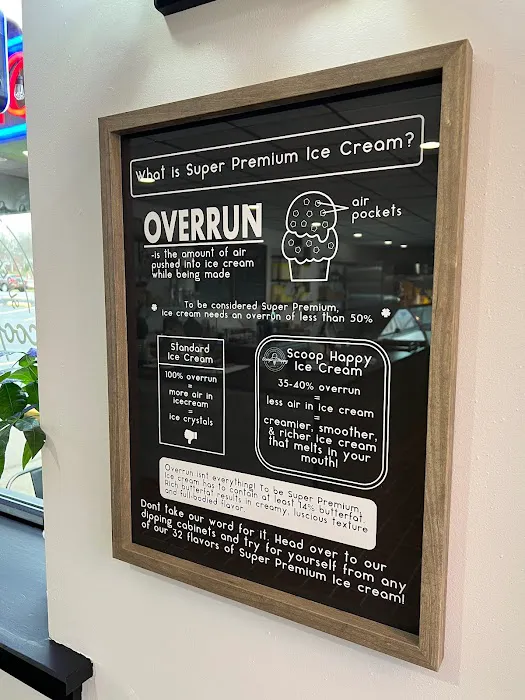 What is Super Premium Ice Cream?
OVERRUN
-is the amount of air
pushed into ice cream
while being made
air
pockets
To be considered Super Premium,
ice cream needs an overrun of less than 50%
Standard
Ice Cream
100% overrun
=
more air in
icecream
=
ice crystals
Scoop Happy
Ice Cream
35-40% overrun
=
less air in ice cream
=
creamier, smoother,
& richer ice cream
that melts in your
mouth!
Overrun isnt everything! To be Super Premium,
Ice cream has to contain at least 14% butterfat
Rich butterfat results in creamy, luscious texture
and full-bodied flavor.
Dont take our word for it, Head over to our
dipping cabinets and try for yourself from any
of our 32 flavors of Super Premium Ice cream!